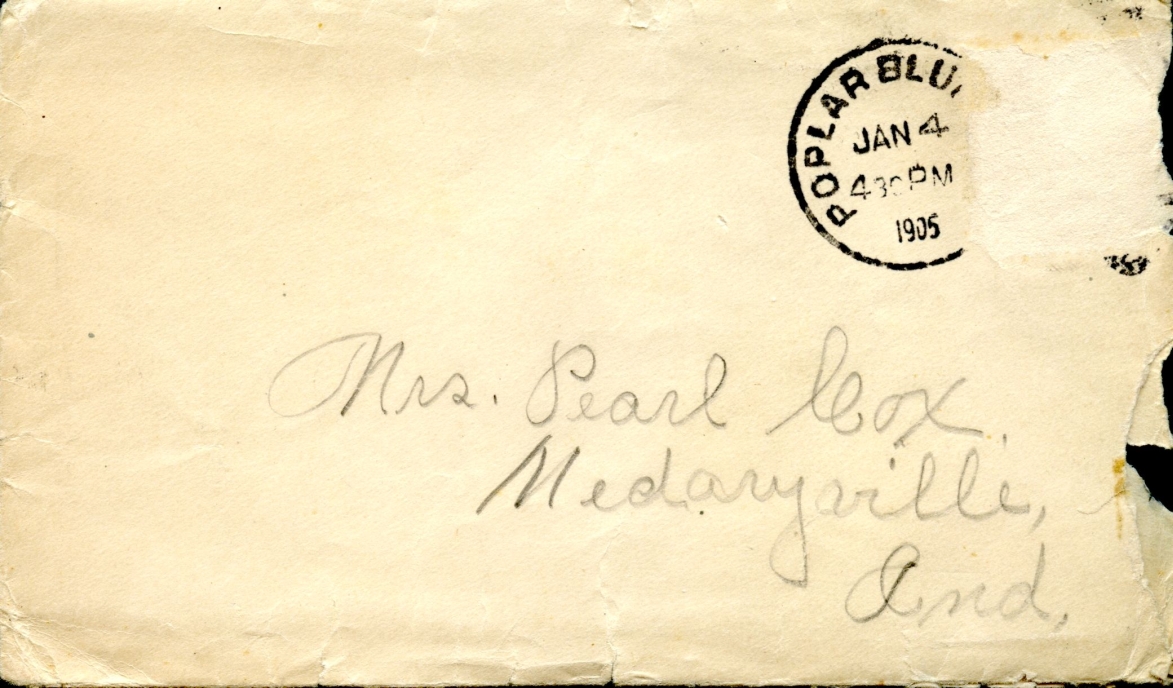 POPLAR BLU
JAN 4
430 PM
1905
Mrs. Pearl Cox,
Medaryville,
Ind.